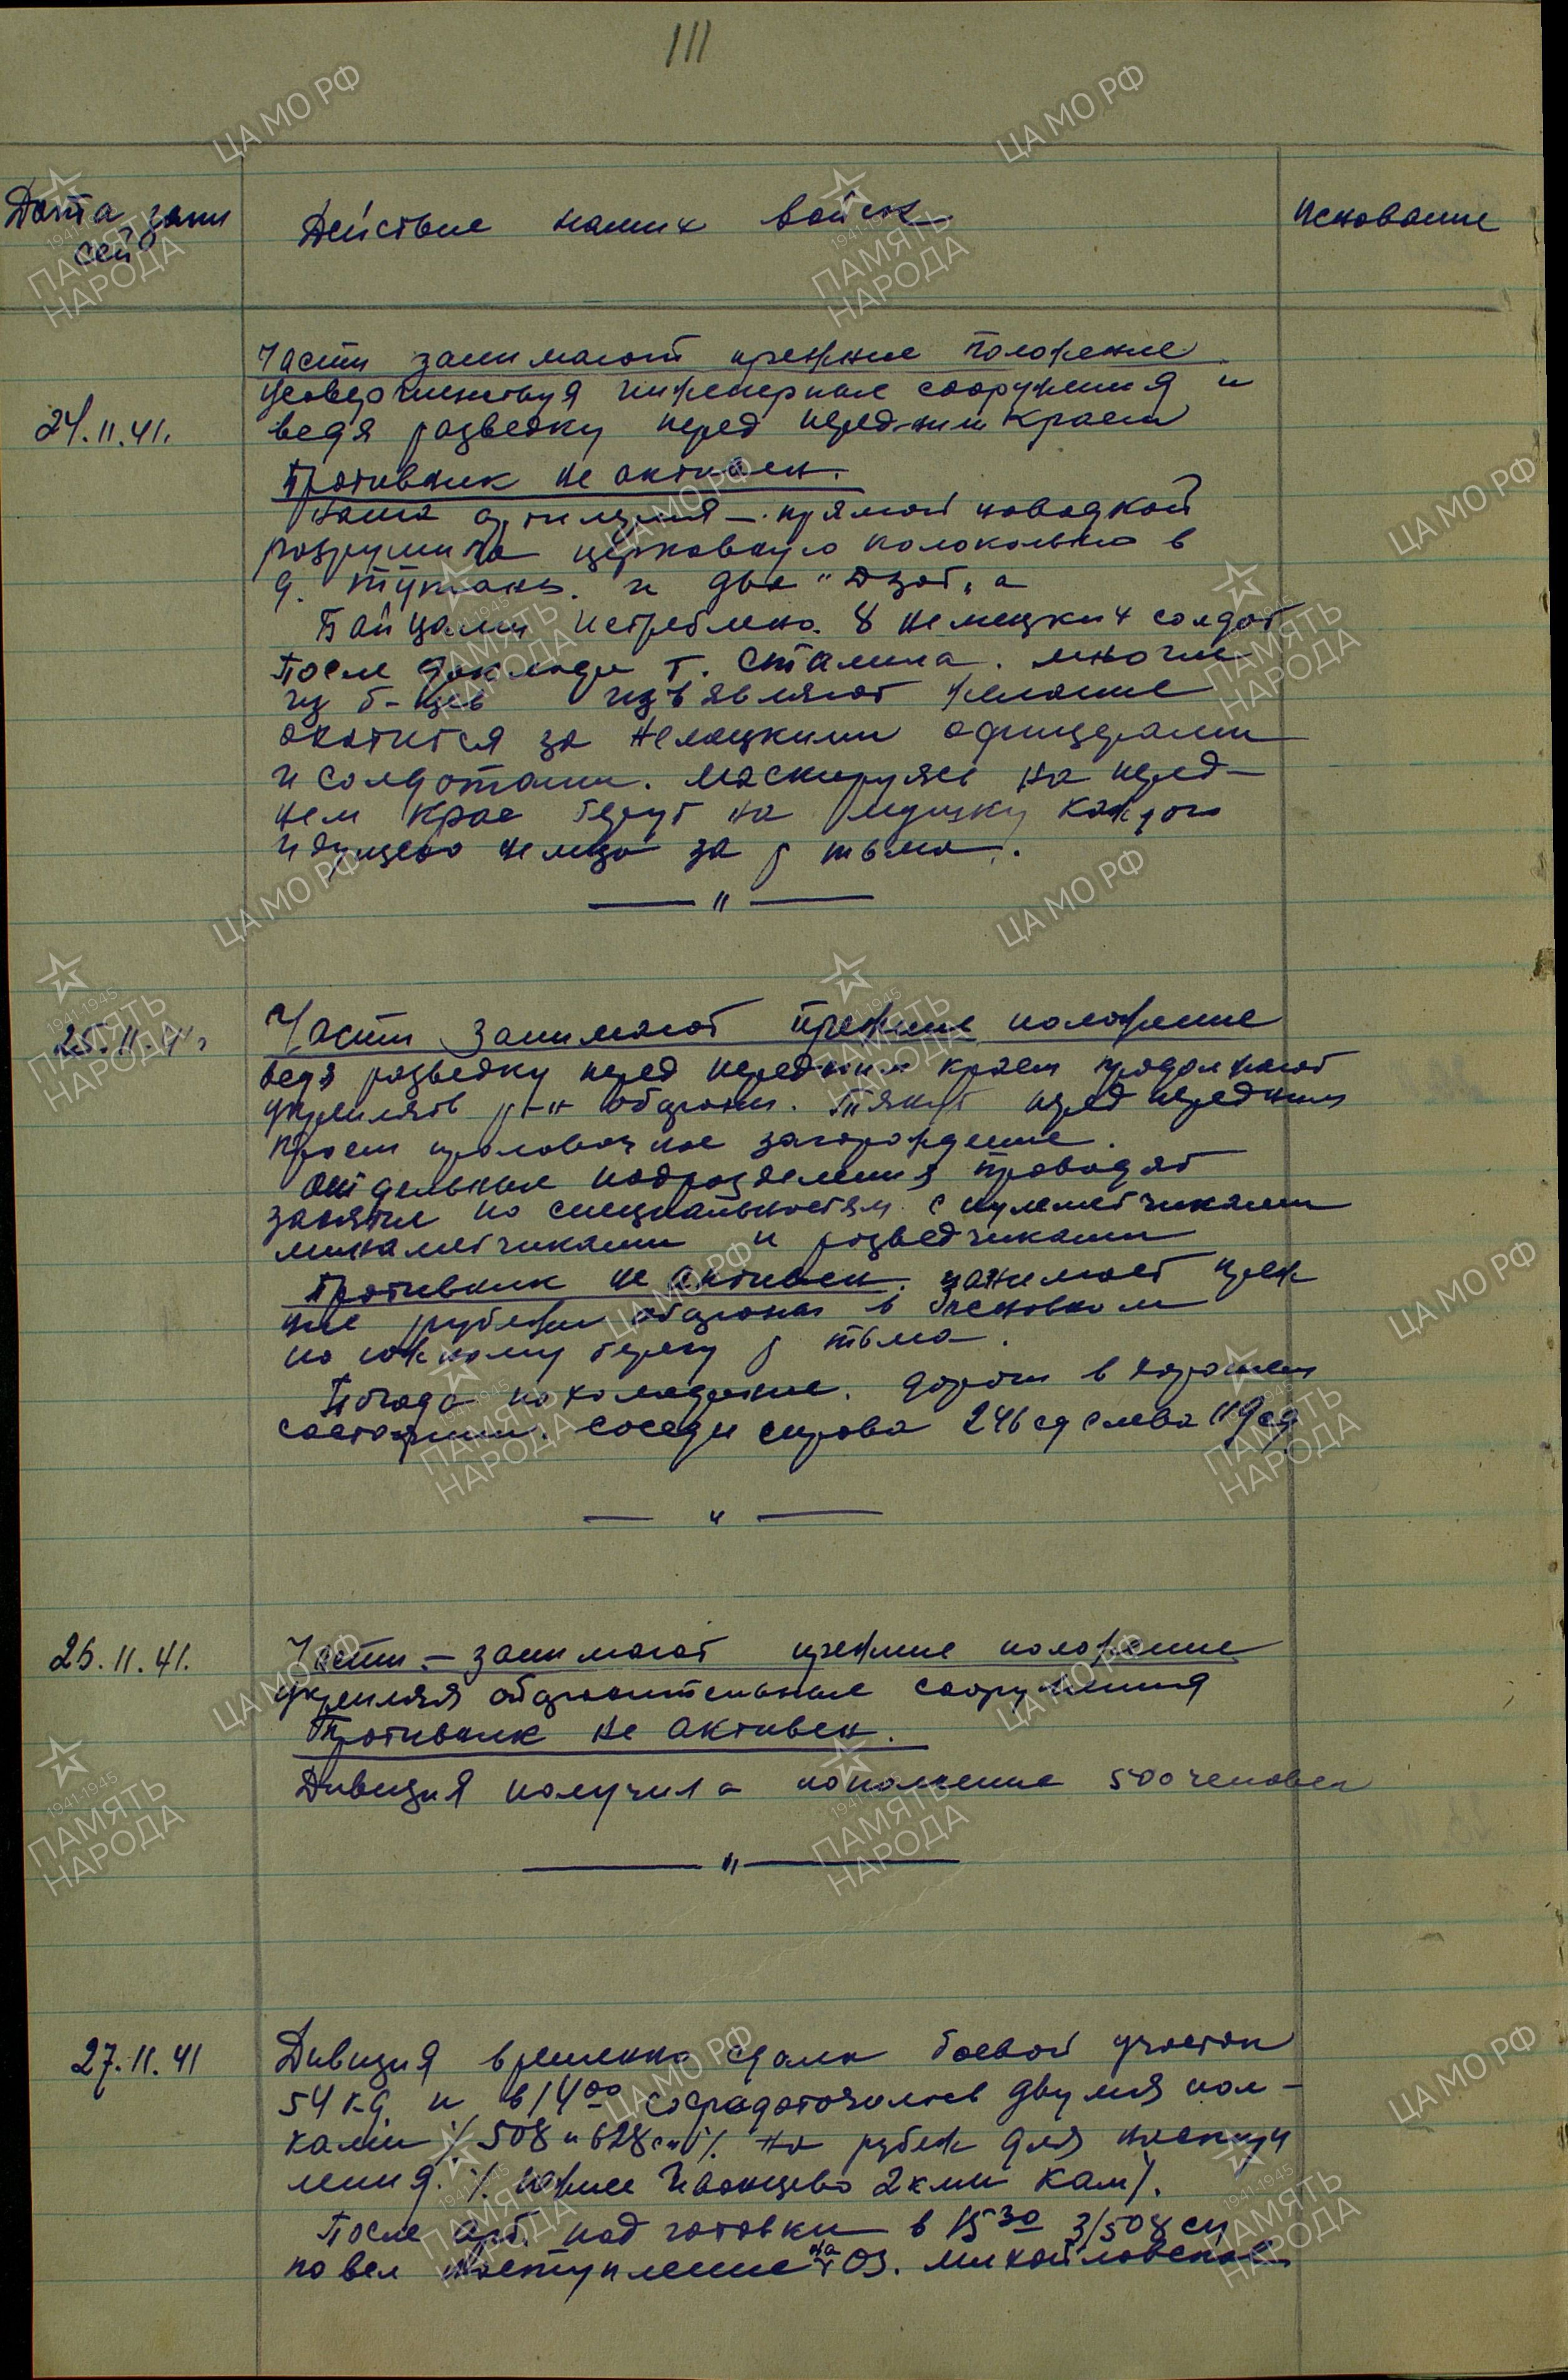 111
Дата запи
сей
Действие наших войск
Основание
24.11.41.
Части занимают прежние положение
усовершенствуя инженерные сооружения и
ведя разведку перед передним краем
Противник не активен.
Наша артилерия – прямой наводкой
разрушила церковную колокольню в
д. Тутань. и два "Дзот"а
Байцами истреблено 8 немецких солдат
После доклада т. Сталина. многие
из б-цев изъявляют желание
охотится за немецкими офицерами
и солдатами. Маскируясь на перед-
нем крае берут на мушку каждого
идущего немца за р тьма.
— " —
25.11.41
Части занимают прежние положение
ведя разведку перед передним краем продолжают
укреплять р-н обороны. Тянут перед передним
краем проволочное загорождение.
Отдельные подразделения проводят
занятие по специальностям с пулеметчиками
минаметчиками и разведчиками
Противник не активен. занимает преж
ние рубежи обороны в основном
по южному берегу р тьма.
Погода похолодание. дороги в хорошем
состоянии. соседи справа 246 сд слева 119 сд
— " —
26.11.41.
Части – занимают прежние положение
укрепляя оборонительные сооружения
Противник не активен.
Дивизия получила пополнение 500 человек
— " —
27.11.41
Дивизия временно сдала боевой участок
54 кд. и в 14 00 сосредоточилось двумя пол-
ками /. 508 и 628 сп /. на рубеж для наступл
ения. /. южнее Иванцево 2 км Кам /.
После арт. под готовки в 15 30 3/508 сп
повел наступление на ОЗ. Михайловское